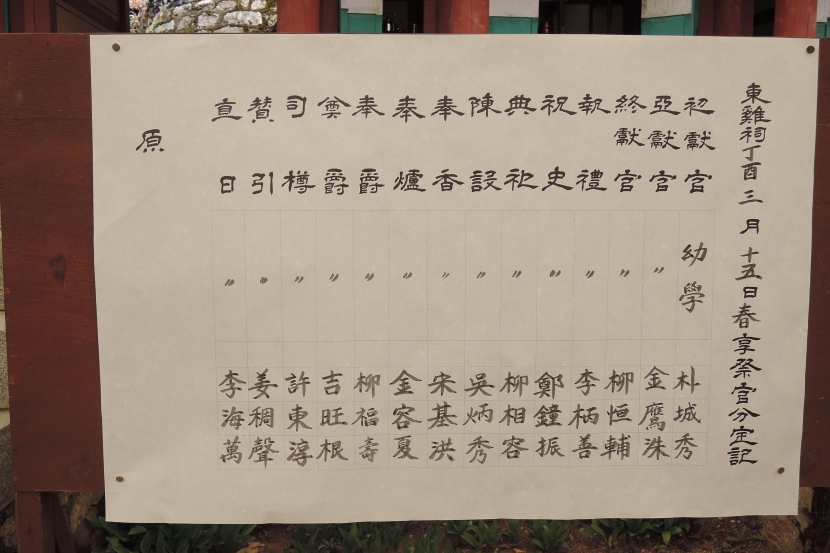 東雞祠丁酉三月十五日春享祭官分定記
初獻官 幼學 朴城秀
亞獻官 〃 金鷹洙
終獻官 〃 柳恒輔
執禮 〃 李柄善
祝史 〃 鄭鐘振
典祀 〃 柳相容
陳設 〃 吳炳秀
奉香 〃 宋基洪
奉爐 〃 金容夏
奉爵 〃 柳福壽
奠爵 〃 吉旺根
司樽 〃 許東淳
贊引 〃 姜稠聲
直日 〃 李海萬
原